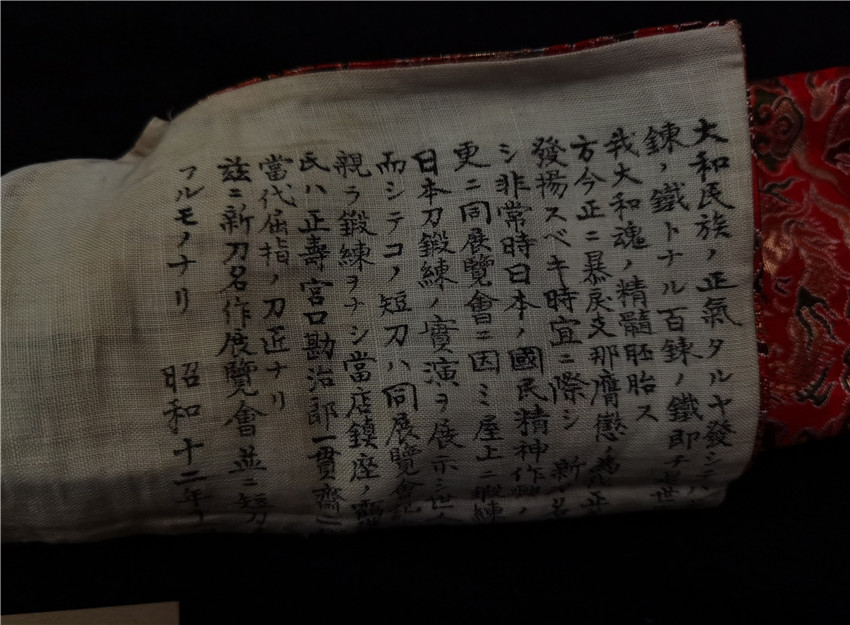 大和民族ノ正氣タルヤ發シテハ
鍊ノ鐵トナル百鍊ノ鐵即チ
我大和魂ノ精髓胚胎ス
方今正ニ暴戻支那膺懲ノ為メ正
發揚スベキ時宜ニ際シ 新
シ非常時日本ノ國民精神作
更ニ同展覽會ニ因ミ屋上ニ鍛練
日本刀鍛練ノ實演ヲ展示シ世
而シテコノ短刀ハ同展覽會記
親ラ鍛練ヲナシ當店鎮座ノ
氏ハ正壽宮口勘治郎一貫齋
當代屈指ノ刀近ナリ
茲ニ新刀名作展覽會並ニ短刀
フルモノナリ 昭和十二年